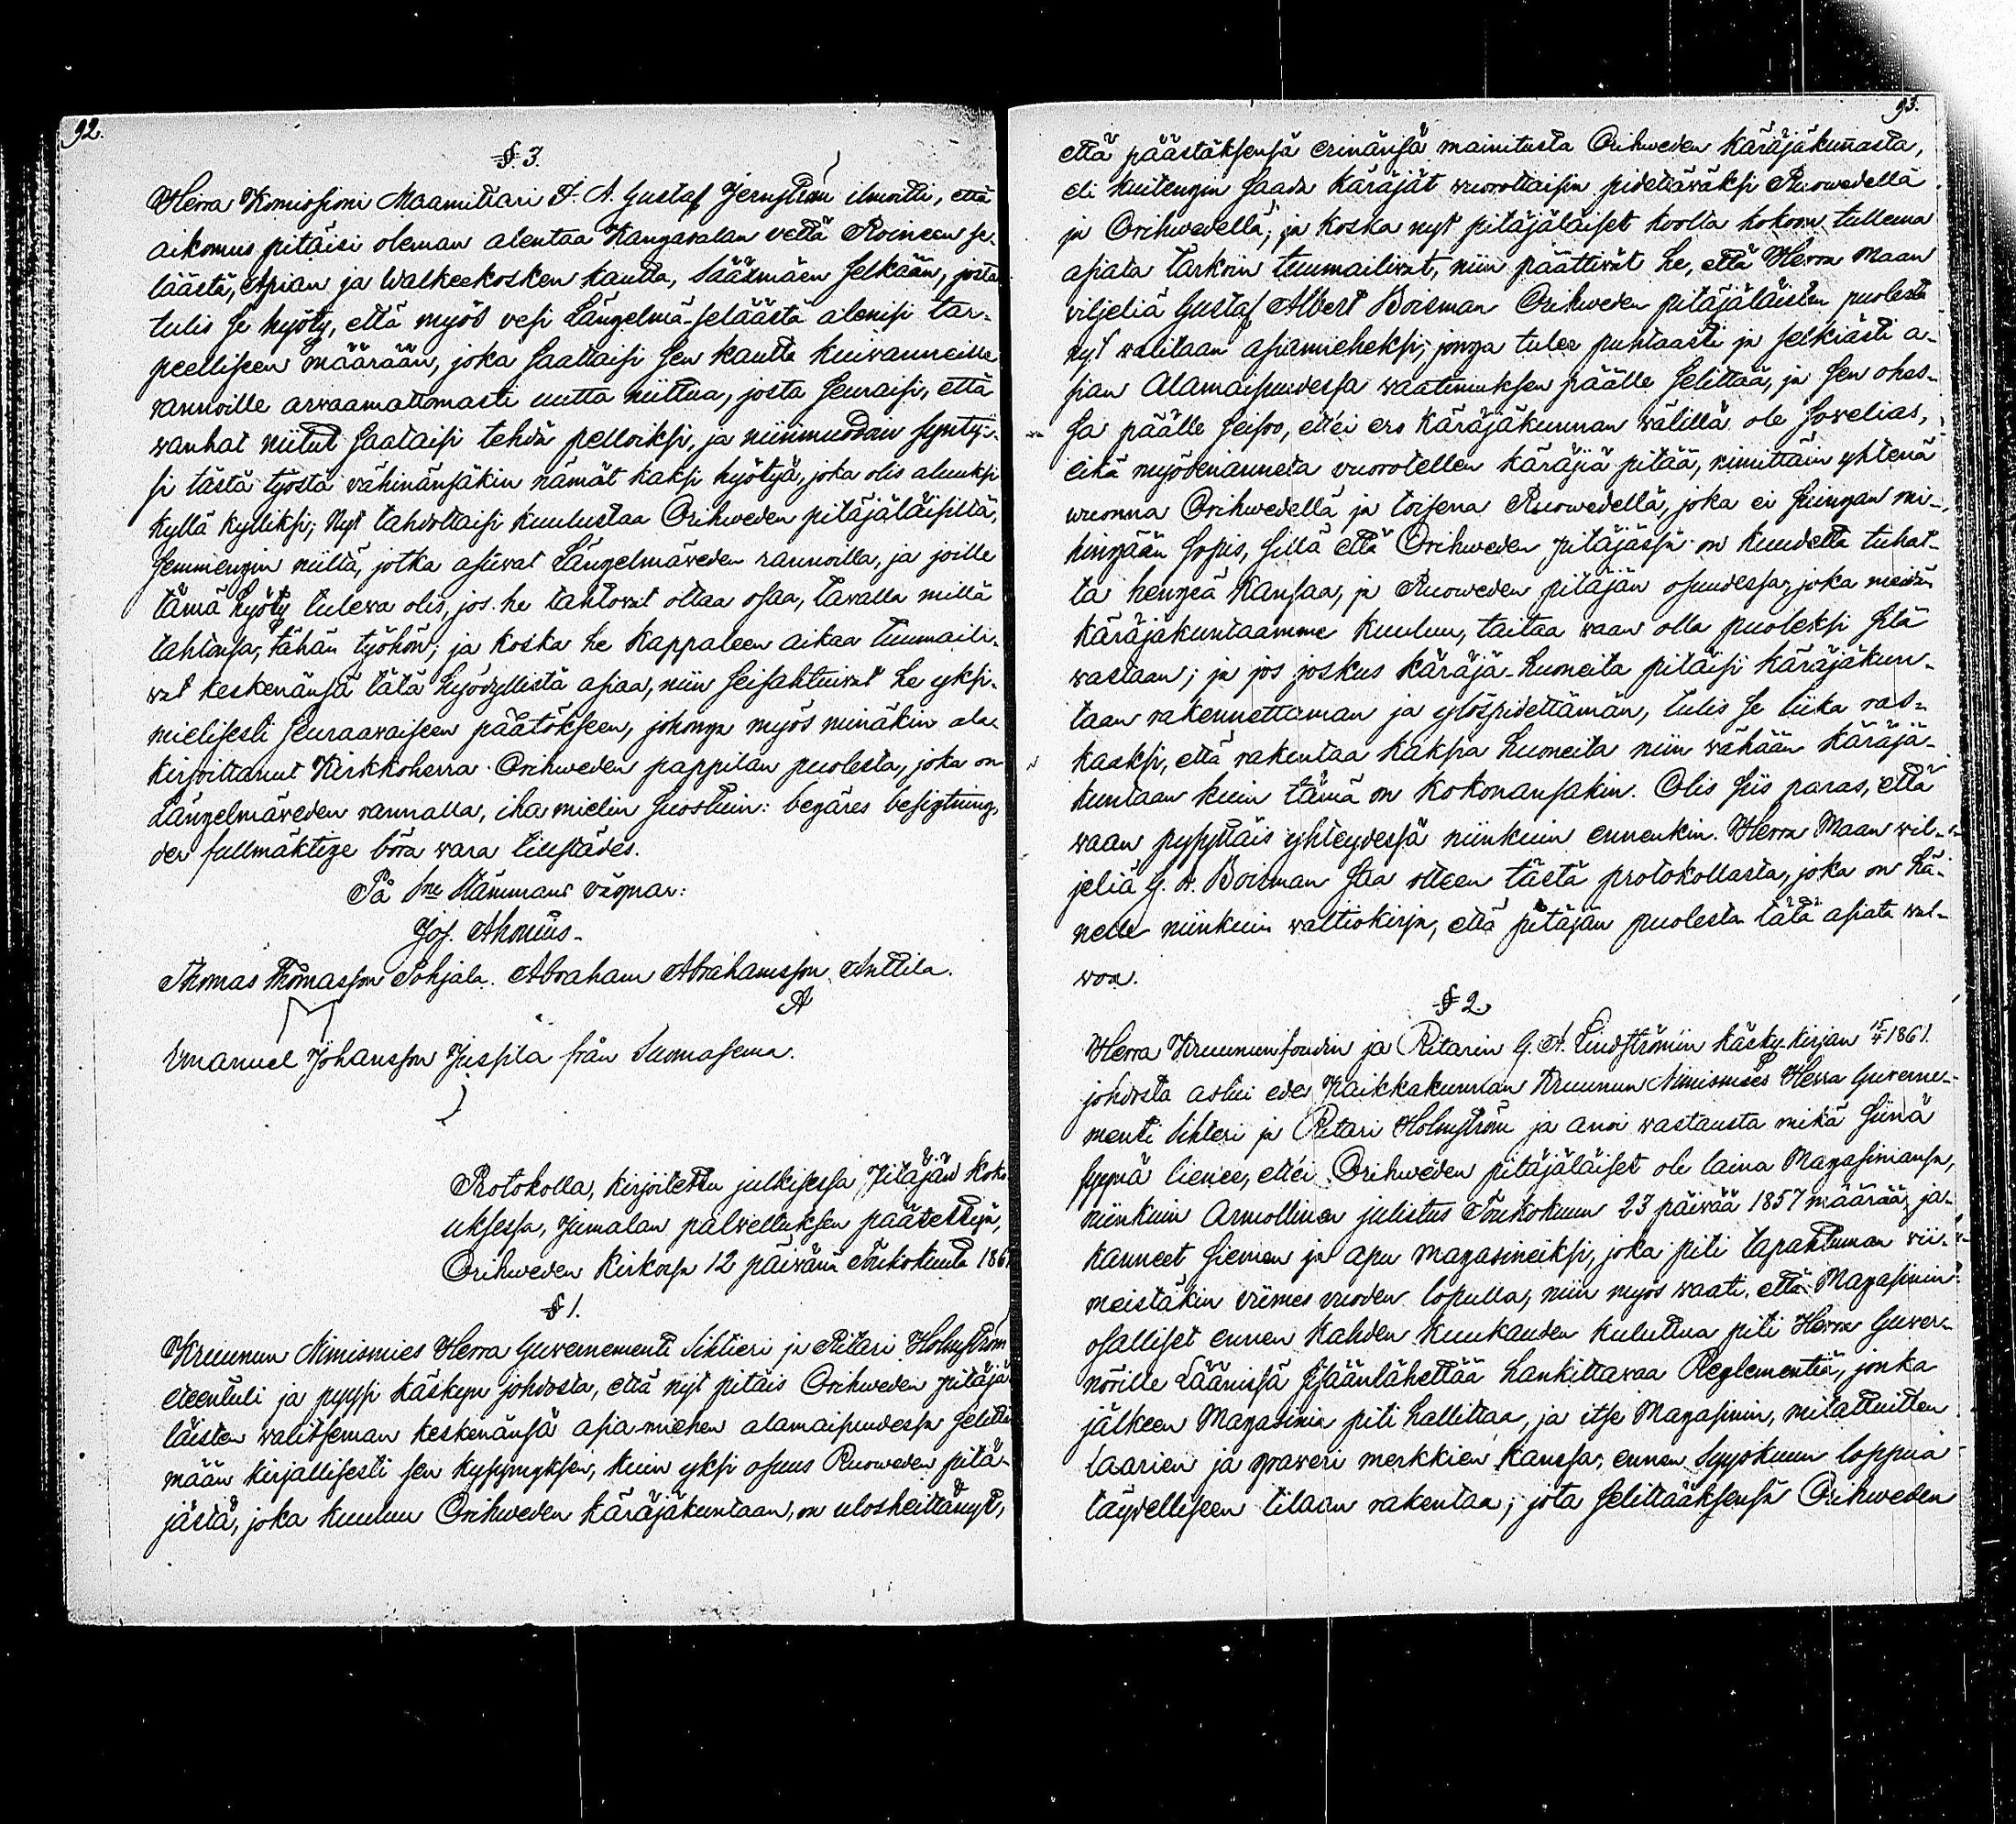 92.
§ 3.
Herra Komissioni Maamittari F. A. Gustaf Jernström ilmoitti, että
aikomus pitäisi oleman alentaa Kangasalan vettä Roineen se-
läästä, Apian ja Walkeekosken kautta, Sääxmäen selkään, josta
tulis se hyöty, että myös vesi Längelmä-seläästä alenisi tar-
peelliseen määrään, joka saattaisi sen kautta kuivanneille
rannoille arwaamattomasti uutta niittua, josta seuraisi, että
wanhat niitut saataisi tehdä pelloiksi, ja niinmuodoin syntyi-
si tästä työstä vähinänsäkin nämät kaksi hyötyä, joka olis aluuksi
kyllä kylliksi; Nyt tahdottaisi kuulustaa Orihweden pitäjäläisiltä,
semmengin niiltä, jotka asuwat Längelmäweden rannoilla, ja joille
tämä hyöty tulewa olis, jos he tahtowat ottaa osaa, tavalla millä
tahtonsa, tähän työhön; ja koska he kappaleen aikaa tuumaili-
wat keskenänsä tätä hyödyllistä asiaa, niin seisahtuiwat he yksi-
mielisesti seuraawaiseen päätökseen, johonga myös minäkin ala-
kirjoittanut Kirkkoherra Orihweden pappilan puolesta, joka on
Längelmäweden rannalla, iha mielin suostuin: begäres besigtning,
der fullmäktige böra wara tillstädes.
På Sne Stämmans vägnar:
Jos. Ahonius.
Thomas Thomasson Pohjala. Abraham Abrahamsson Anttila.
A
Emanuel Johansson Jussila från Suomasema.
Protokolla, kirjoitettu julkisessa Pitäjän koko-
uksessa, Jumalan palwelluksen päätettyä,
Orihweden Kirkossa 12 päivänä Toukokuuta 1861
§ 1.
Kruunun Nimismies Herra Guvernementi Sihtieri ja Ritari Holmström
eteentuli ja pyysi käskyn johdosta, että nyt pitäis Orihweden pitäjä
läisten walitseman keskenänsä asia-miehen alamaisuudessa selittä
mään kirjallisesti sen kysymyksen, kuin yksi osuus Ruoweden pitä-
jästä, joka kuuluu Orihweden käräjäkuntaan, on ulosheittänyt,
93.
että päästäksensä erinänsä mainitusta Orihweden käräjäkunnasta,
eli kuitengin saada käräjät wuorottaisin pidettäwäksi Ruowedellä
ja Orihwedellä; ja koska nyt pitäjäläiset koolla kokoon tullema
asiata tarkoin tuumailiwat, niin päättiwät he, että Herra Maan
viljeliä Gustaf Albert Boisman Orihweden pitäjäläisten puolesta
nyt walitaan asiamieheksi; jonga tulee puhtaasti ja selkiästi a-
sian Alamaisuudessa waatimuksen päälle selittää, ja sen ohes-
sa päälle seisoo, ettei ero käräjäkunnan välillä ole sowelias,
eikä myödenanneta vuorotellen käräjiä pitää, nimittäin yhtenä
wuonna Orihwedellä ja toisena Ruowedellä, joka ei suingan mi-
hingään sopis, sillä että Orihweden pitäjässä on kuudetta tuhat-
ta hengeä kansaa, ja Ruoweden pitäjän osuudessa, joka meidän
käräjäkuntaamme kuuluu, taitaa waan olla puoleksi sitä
wastaan; ja jos joskus käräjä-huoneita pitäisi käräjäkun-
taan rakennettaman ja ylöspidettämän, tulis se liika ras-
kaaksi, että rakentaa kaksia huoneita niin wähään käräjä-
kuntaan kuin tämä on kokonansakin. Olis siis paras, että
waan pysyttäis yhteydessä niinkuin ennenkin. Herra Maan wil-
jeliä G. A. Boisman saa otteen tästä protokollasta, joka on hä-
nelle niinkuin waltiokirja, että pitäjän puolesta tätä asiata wal-
woa.
§ 2.
Herra Kruununfoudin ja Ritarin G. A. Lindströmin käsky-kirjan 15/4 1861.
johdosta astui edes Kaikkakunnan Kruunun Nimismies Herra Guverne-
menti Sihteri ja Ritari Holmström ja anoi wastausta mikä siinä
syynä lienee, ettei Orihweden pitäjäläiset ole laina Magasiniansa,
niinkuin Armollinen julistus Toukokuun 23 päivää 1857 määrää, ja-
kanneet siemen ja apu magasineiksi, joka piti tapahtuman vii-
meistäkin viimes vuoden lopulla, niin myös waati, että Magasinin
osalliset ennen kahden kuukauden kuluttua piti Herra Guver-
nörille Läänissä sisäänlähettää hankittavaa Reglementiä, jonka
jälkeen Magasinia piti hallittaa, ja itse Magasinin, mitattuitten
laarien ja graveri merkkien kanssa, ennen Syyskuun loppua
täydelliseen tilaan rakentaa; jota selittääksensä Orihweden